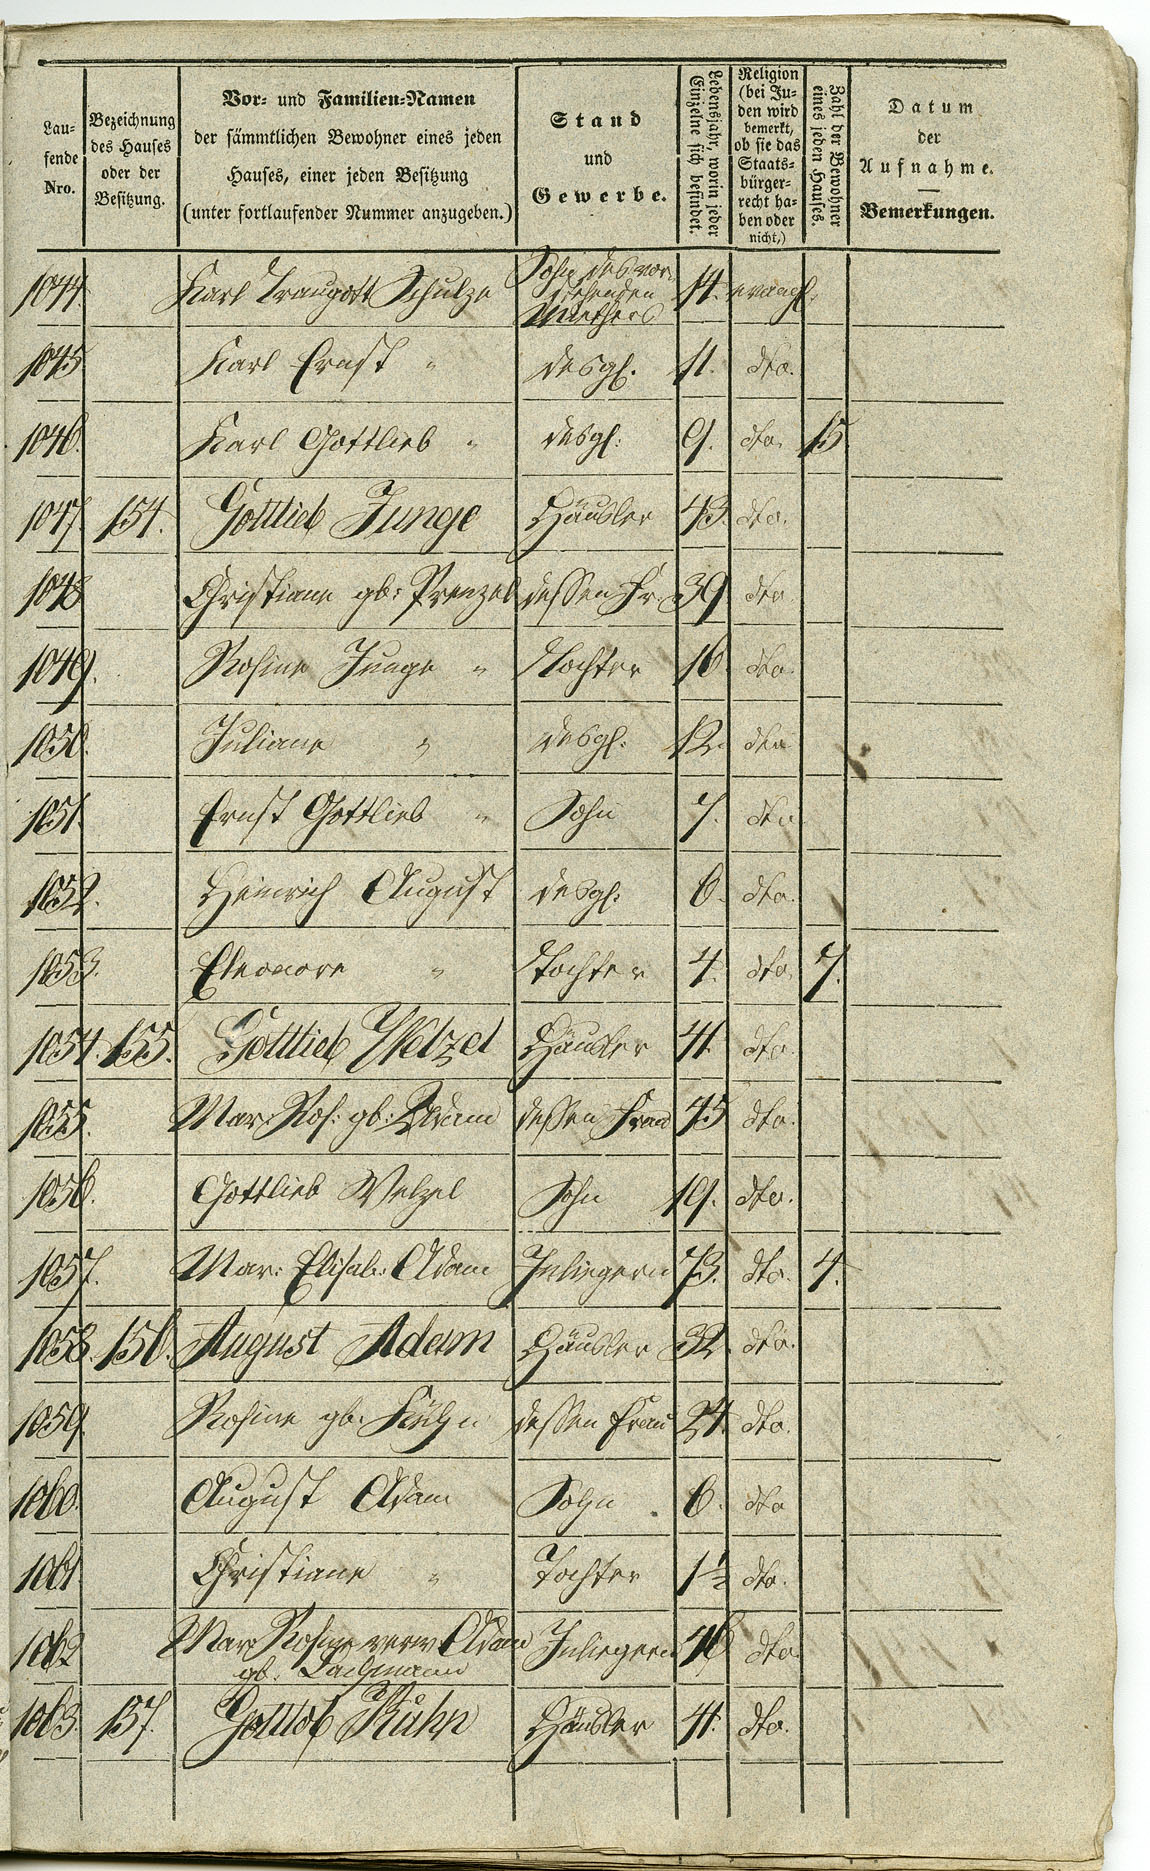 Lau-
fende
Nro.
Bezeichnung
des Hauses
oder der
Besitzung.
Vor- und Familien-Namen
der sämmtlichen Bewohner eines jeden
Hauses, einer jeden Besitzung
(unter fortlaufender Nummer anzugeben.)
Stand
und
Gewerbe.
Lebensjahr, worin jeder
Einzelne sich befindet.
Religion
(bei Ju-
den wird
bemerkt,
ob sie das
Staats-
bürger-
recht ha-
ben oder
nicht,)
Zahl der Bewohner
eines jeden Hauses.
Datum
der
Aufnahme.
Bemerkungen.
1044 Karl Traugott Schulze Sohn des vor-
stehenden
Miethers 14. evangl.
1045 Karl Ernst " desgl. 11. dto.
1046. Karl Gottlieb " desgl. 9. dto. 15
1047 154. Gottlieb Junge Häusler 43. dto.
1048 Christiane gb: Prenzel dessen Fr. 39 dto.
1049. Rosine Junge " Tochter 16. dto.
1050. Juliane " desgl. 12. dto.
1051. Ernst Gottlieb " Sohn 7. dto.
1052. Heinrich August desgl. 6. dto.
1053. Eleonore " Tochter 4. dto. 7.
1054. 155. Gottlieb Welzel Häusler 41. dto.
1055. Mar: Ros: gb: Adam dessen Frau 45 dto.
1056. Gottlieb Welzel Sohn 19. dto.
1057. Mar: Elisab: Adam Inliegerin 73. dto. 4.
1058. 156. August Adam Häusler 32. dto.
1059. Rosine gb. Kühn dessen Frau 24. dto.
1060. August Adam Sohn 6. dto
1061 Christiane " Tochter 1½ dto.
1062 Mar: Rosine verw. Adam Inliegerin 46 dto.
gb. Lachmann
1063. 157. Gottlob Kuhn Häusler 41. dto.